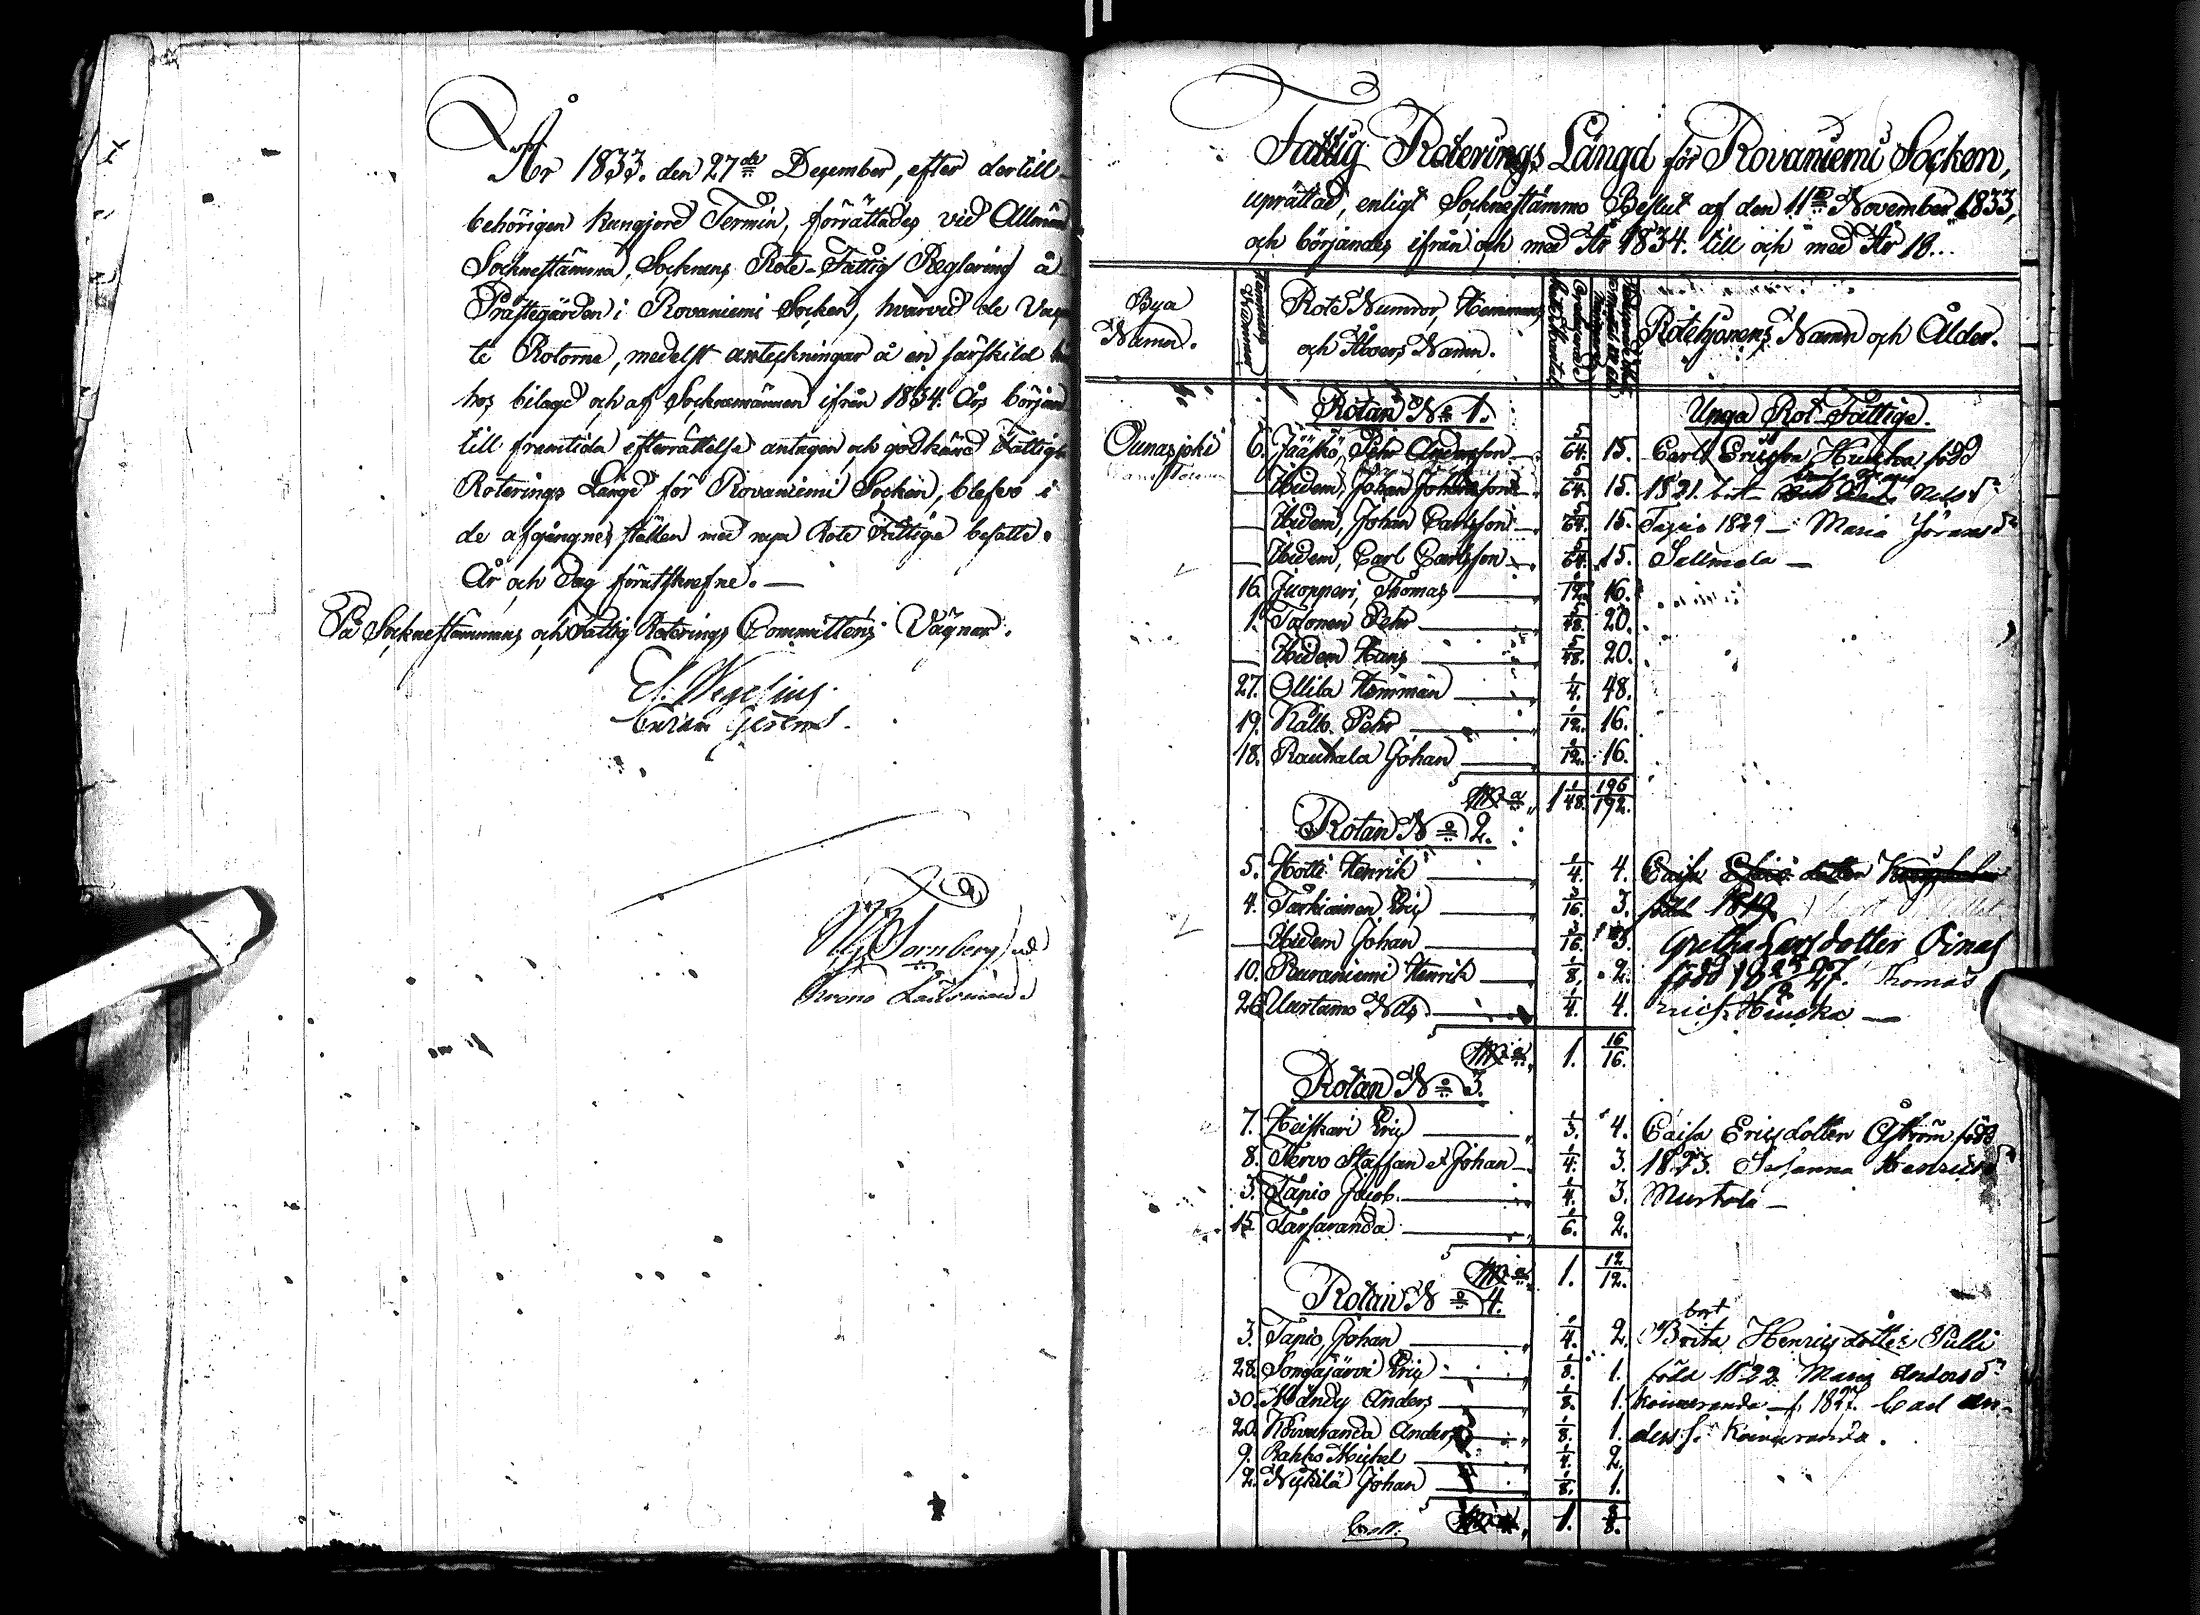 År 1833. den 27de December, efter dertill
behörigen kungjord Termin, förrättades vid Allmän
Sockenstämma, Socknens Rote-Fattig Reglering å
Prästegården i Rovaniemi Socken, hvarvid de
te Rotorne, medelst anteckningar å en särskild
hos bilagd och af Socknemännen ifrån 1834. Års början
till framtida efterrättelse antagen och godkänd Fattig
Roterings Längd för Rovaniemi Socken, blefvo i
de afgångnes ställen med nya Rote Fattiga besatte.
År och Dag förutskrefne. —
På Sockenstämmans och Fattig Roterings Committens Vägnar.
E. Wegelius.
Krono Länsman.
Fattig Roterings Längd för Rovaniemi Socken,
uprättad, enligt Sockenstämmo Beslut af den 11te November 1833,
och börjandes ifrån och med År 1834. till och med År 18...
Bya Namn.
Rote Numror, Hemmans och Åboers Namn.
Rotehjonens Namn och Ålder.
Rotan No 1. Unga Rot-Fattige.
Ounasjoki 6. Jääskö, Pehr Andersson 5/64. 15. Carl Ericsson Hiuska född
— Ibidem, Johan Johansson 5/64. 15. 1821. Nils dr
— Ibidem, Johan Carlsson 5/64. 15. Tapio 1829 — Maria Göransdr
— Ibidem, Carl Carlsson 5/64. 15. Sallmela —
16. Juopperi, Thomas 1/12. 16.
1. Tolonen Pehr 5/48. 20.
— Ibidem Hans 5/48. 20.
27. Ollila Hemman 1/4. 48.
19. Kallo Pehr 1/12. 16.
18. Rauhala Johan 1/12. 16.
1 1/48. 196/192.
Rotan No 2.
5. Hotti Henrik 1/4. 4. Caisa
4. Tarkiainen Eric 3/16. 3. född 1819
— Ibidem Johan 3/16. 3. Gretha Larsdotter Oinas
10. Ruuaniemi Henrik 1/8. 2. född 1827. Thomas
26. Aurtamo Nils 1/4. 4. Erics Hiuska —
1. 16/16.
Rotan No 3.
7. Heiskari Eric 1/3. 4. Caisa Ericsdotter Åström född
8. Tervo Staffan et Johan 1/4. 3. 1823. Susanna Henrics dr
3. Tapio Jacob 1/4. 3. Murtola —
15. Tarsaranda 1/6. 2.
1. 12/12.
Rotan No 4.
bort
3. Tapio, Johan 1/4. 2. Brita Henricsdotter Pulli
28. Songajärvi Eric 1/8. 1. född 1822 Maria Anders dr
30. Mändy Anders 1/8. 1. Koivuranda f. 1827. Carl An-
20. Koivuranda Anders 1/8. 1. ders s. Koivuranda.
9. Rahko Michel 1/4. 2.
2. Niskilä Johan 1/8. 1.
1. 8/8.